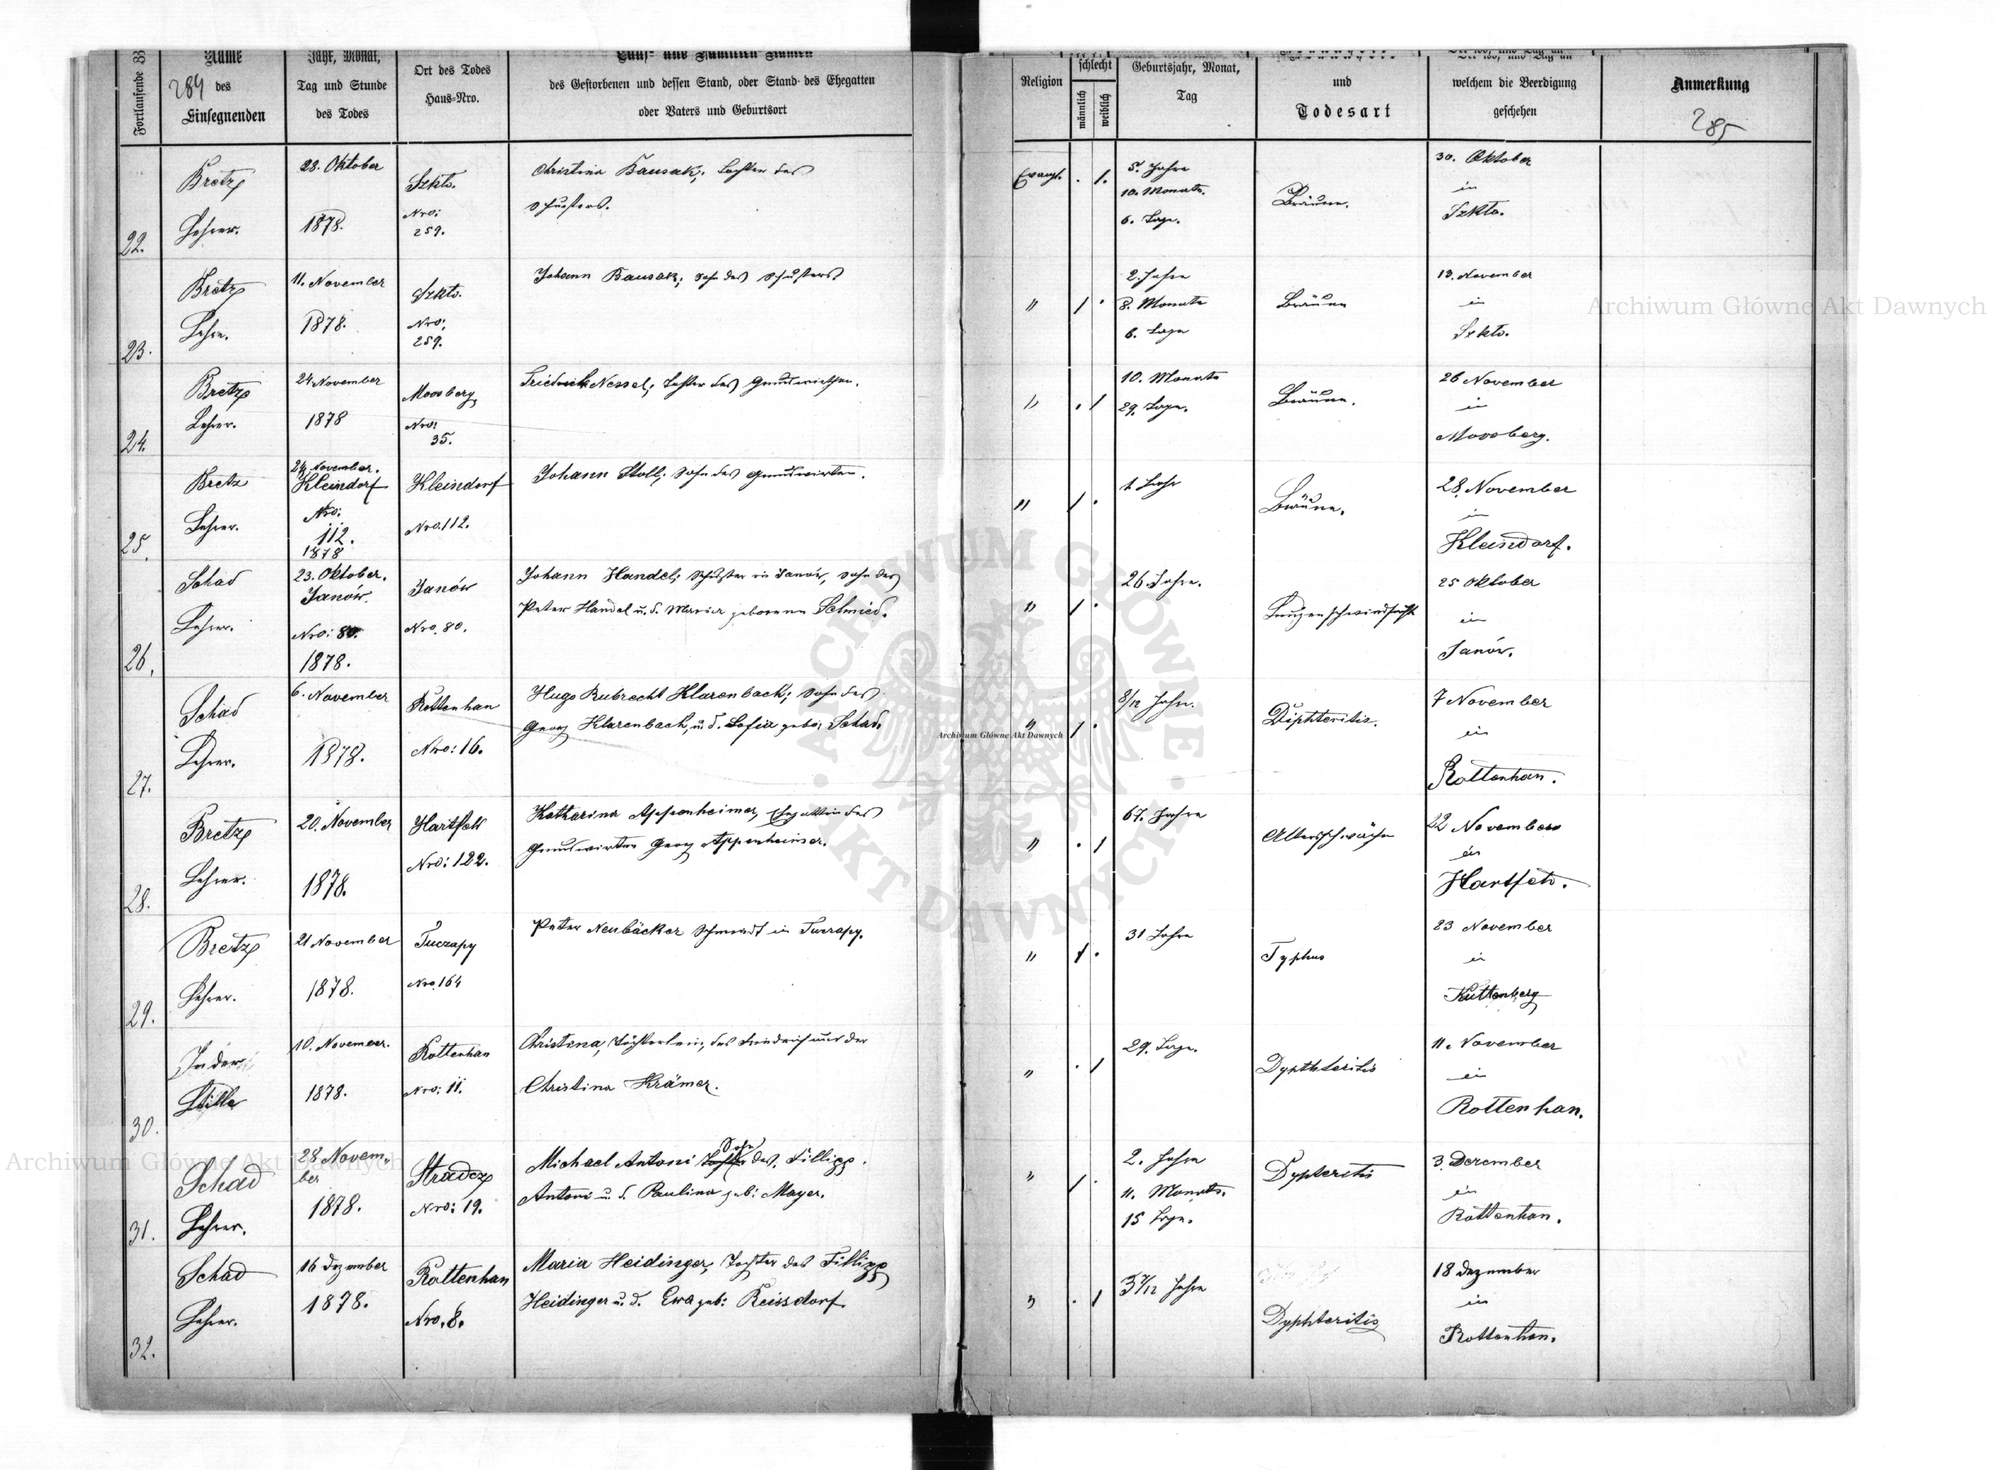 Fortlaufende
Name
284 des
Einsegnenden
Jahr, Monat,
Tag und Stunde
des Todes
Ort des Todes
Haus-Nro.
Tauf- und Familien Namen
des Gestorbenen und dessen Stand, oder Stand des Ehegatten
oder Vaters und Geburtsort
Religion
schlecht
männlich
weiblich
Geburtsjahr, Monat,
Tag
und
Todesart
welchem die Beerdigung
geschehen
Anmerkung
285
22.
Bretz
Lehrer.
28. Oktober
1878.
Szkto.
Nro:
259.
Christina Bausak; Tochter des
Schusters.
Evangl. . 1.
5. Jahre
10. Monate.
6. Tage.
Bräune.
30. Oktober
in
Szkto.
23.
Bretz
Lehre.
11. November
1878.
Szkto.
Nro:
259.
Johann Bausak; Sohn des Schusters
" 1 .
2. Jahre
8. Monate
6. Tage
Bräune
12. November
in
Szkto.
24.
Bretz
Lehrer.
24 November
1878
Moosberg
Nro:
35.
Friedrich Nessel; Tochter des Grundwirthen.
" . 1
10. Monate
29. Tage.
Bräune.
26 November
in
Moosberg.
25.
Bretz
Lehrer.
24 November.
Kleindorf
Nro:
112.
1878
Kleindorf
Nro. 112.
Johann Stoll; Sohn des Grundwirten.
" 1 .
1 Jahr
Bräune.
28. November
in
Kleindorf.
26.
Schad
Lehrer.
23. Oktober.
Janów.
Nro: 80.
1878.
Janów
Nro. 80.
Johann Handel; Schuster in Janów, Sohn des
Peter Handel u. d. Maria geborenen Schmied.
" 1 .
26 Jahre.
Lungenschwindsucht
25 Oktober
in
Janów.
27.
Schad
Lehrer.
6. November
1878.
Rottenhan
Nro: 16.
Hugo Rubrecht Klarenback; Sohn des
Georg Klarenbach, u. d. Sofia geb: Schad.
" 1 .
8/12 Jahre.
Diphteritis.
7 November
in
Rottenhan.
28.
Bretz
Lehrer.
20. November
1878.
Hartfeld
Nro: 122.
Katharina Appenheimer, Ehegattin des
Grundwirten Georg Appenheimer.
" . 1
67. Jahre
Altersschwäche
22 November
in
Hartfeld.
29.
Bretz
Lehrer.
21 November
1878.
Tuczapy
Nro. 164
Peter Neubäcker Schmidt in Tuczapy.
" 1 .
31 Jahre
Typhus
23 November
in
Kuttenberg
30.
In der
Stille
10. November.
1878.
Rottenhan
Nro: 11.
Christina, Töchterlein, des Friedrich und der
Christina Krämer.
" . 1
29. Tage.
Dyphteritis
11. November
in
Rottenhan.
31.
Schad
Lehrer.
28 Novem-
ber
1878.
Stradcz
Nro: 19.
Sohn
Michael Antoni Tochter des, Fillipp.
Antoni u. d. Paulina geb: Mayer.
" 1 .
2. Jahre
11. Monate.
15 Tage.
Dypteritis
3. Dezember
in
Rottenhan.
32.
Schad
Lehrer.
16 Dezember
1878.
Rottenhan
Nro. 8.
Maria Heidinger, Tochter des Fillipp
Heidinger u. d. Ewa geb: Reissdorf
" . 1
3 7/12 Jahre
Dyphteritis
18 Dezember
in
Rottenhan.
Archiwum Główne Akt Dawnych
Archiwum Główne Akt Dawnych
Archiwum Główne Akt Dawnych
ARCHIWUM GŁÓWNE · AKT DAWNYCH ·